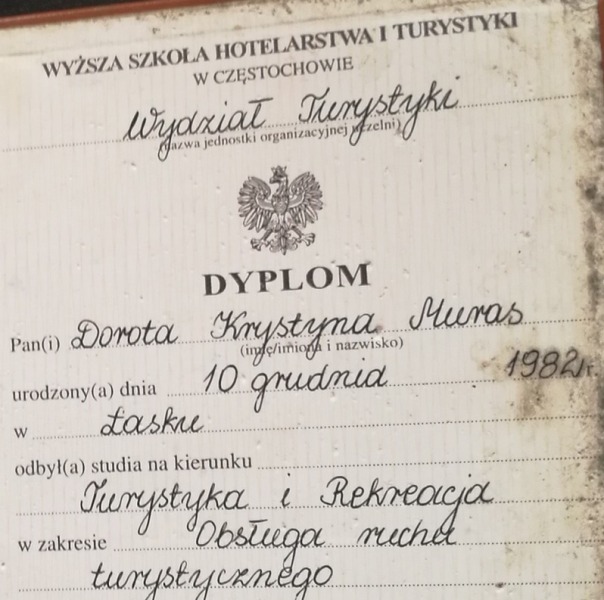 WYŻSZA SZKOŁA HOTELARSTWA I TURYSTYKI
W CZĘSTOCHOWIE
Wydział Turystyki
(nazwa jednostki organizacyjnej uczelni)
DYPLOM
Pan(i) Dorota Krystyna Muras
(imię/imiona i nazwisko)
urodzony(a) dnia 10 grudnia 1982 r.
w Łasku
odbył(a) studia na kierunku
Turystyka i Rekreacja
w zakresie Obsługa ruchu
turystycznego